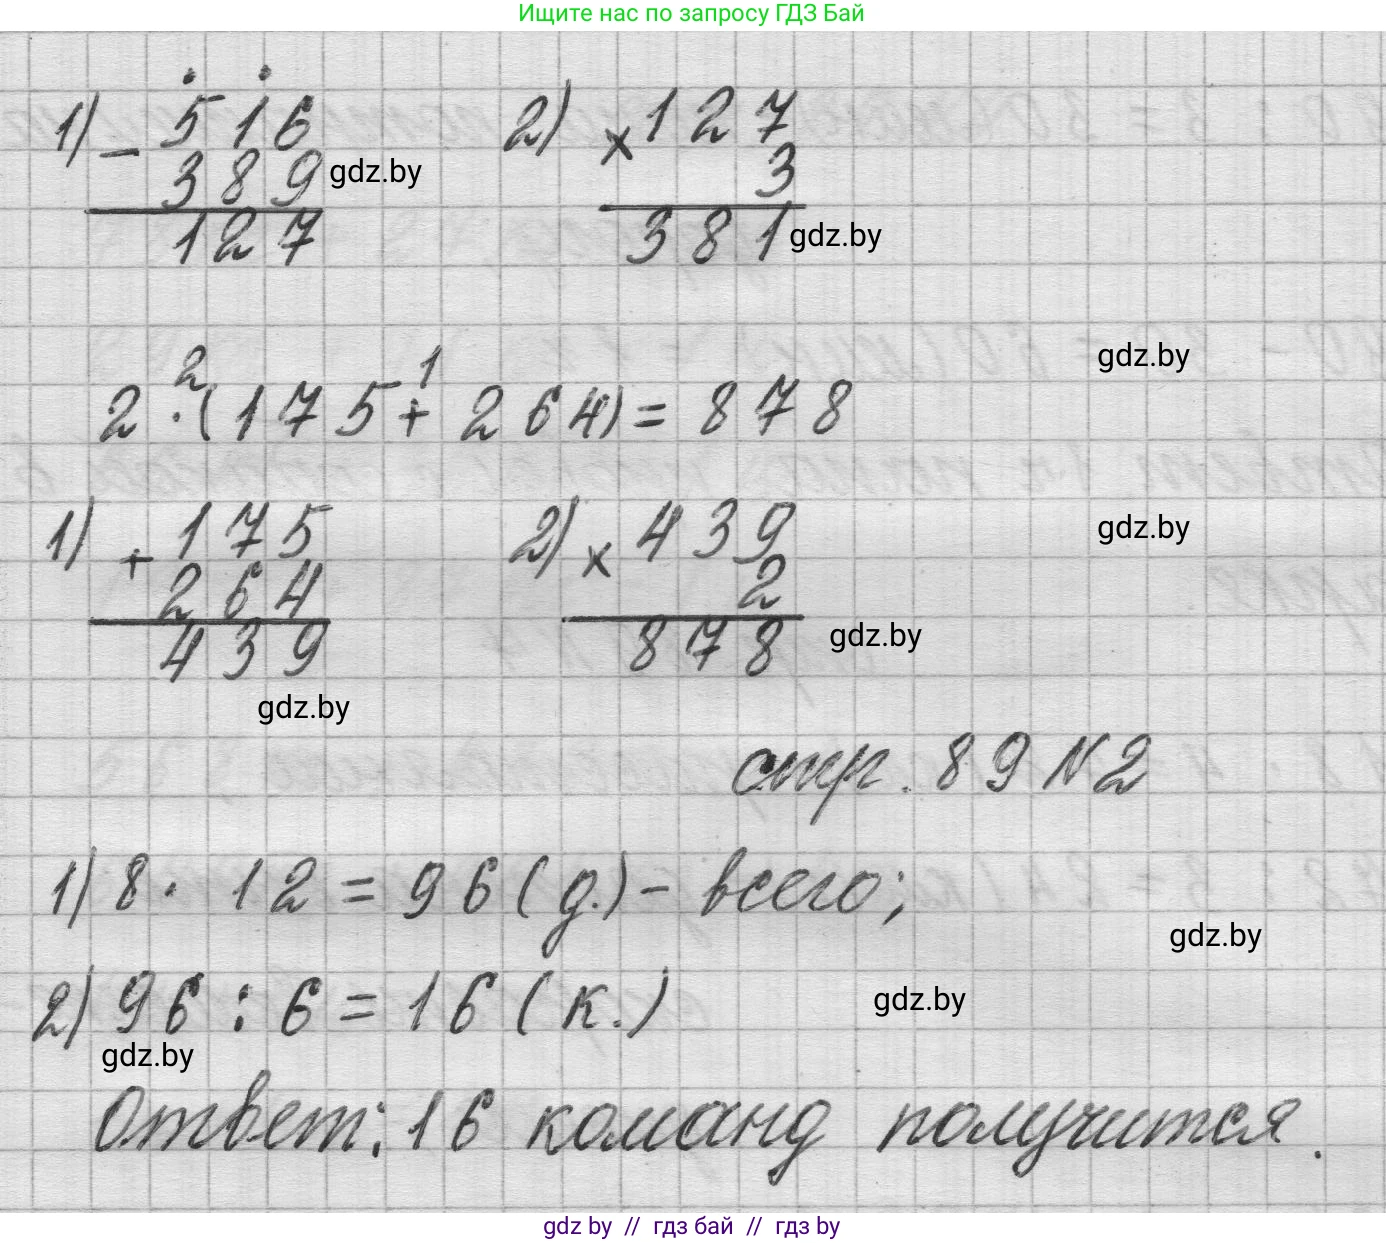 Ищите нас по запросу ГДЗ Бай
1) - 516 2) × 127
389 gdz.by 3
127 381 gdz.by
gdz.by
2 1
2 · (175 + 264) = 878
1) + 175 2) × 439 gdz.by
264 2
439 878 gdz.by
gdz.by
стр. 89 №2
1) 8 · 12 = 96 (д.) - всего;
gdz.by
2) 96 : 6 = 16 (к.) gdz.by
gdz.by
Ответ: 16 команд получится.
gdz by // гдз бай // гдз by